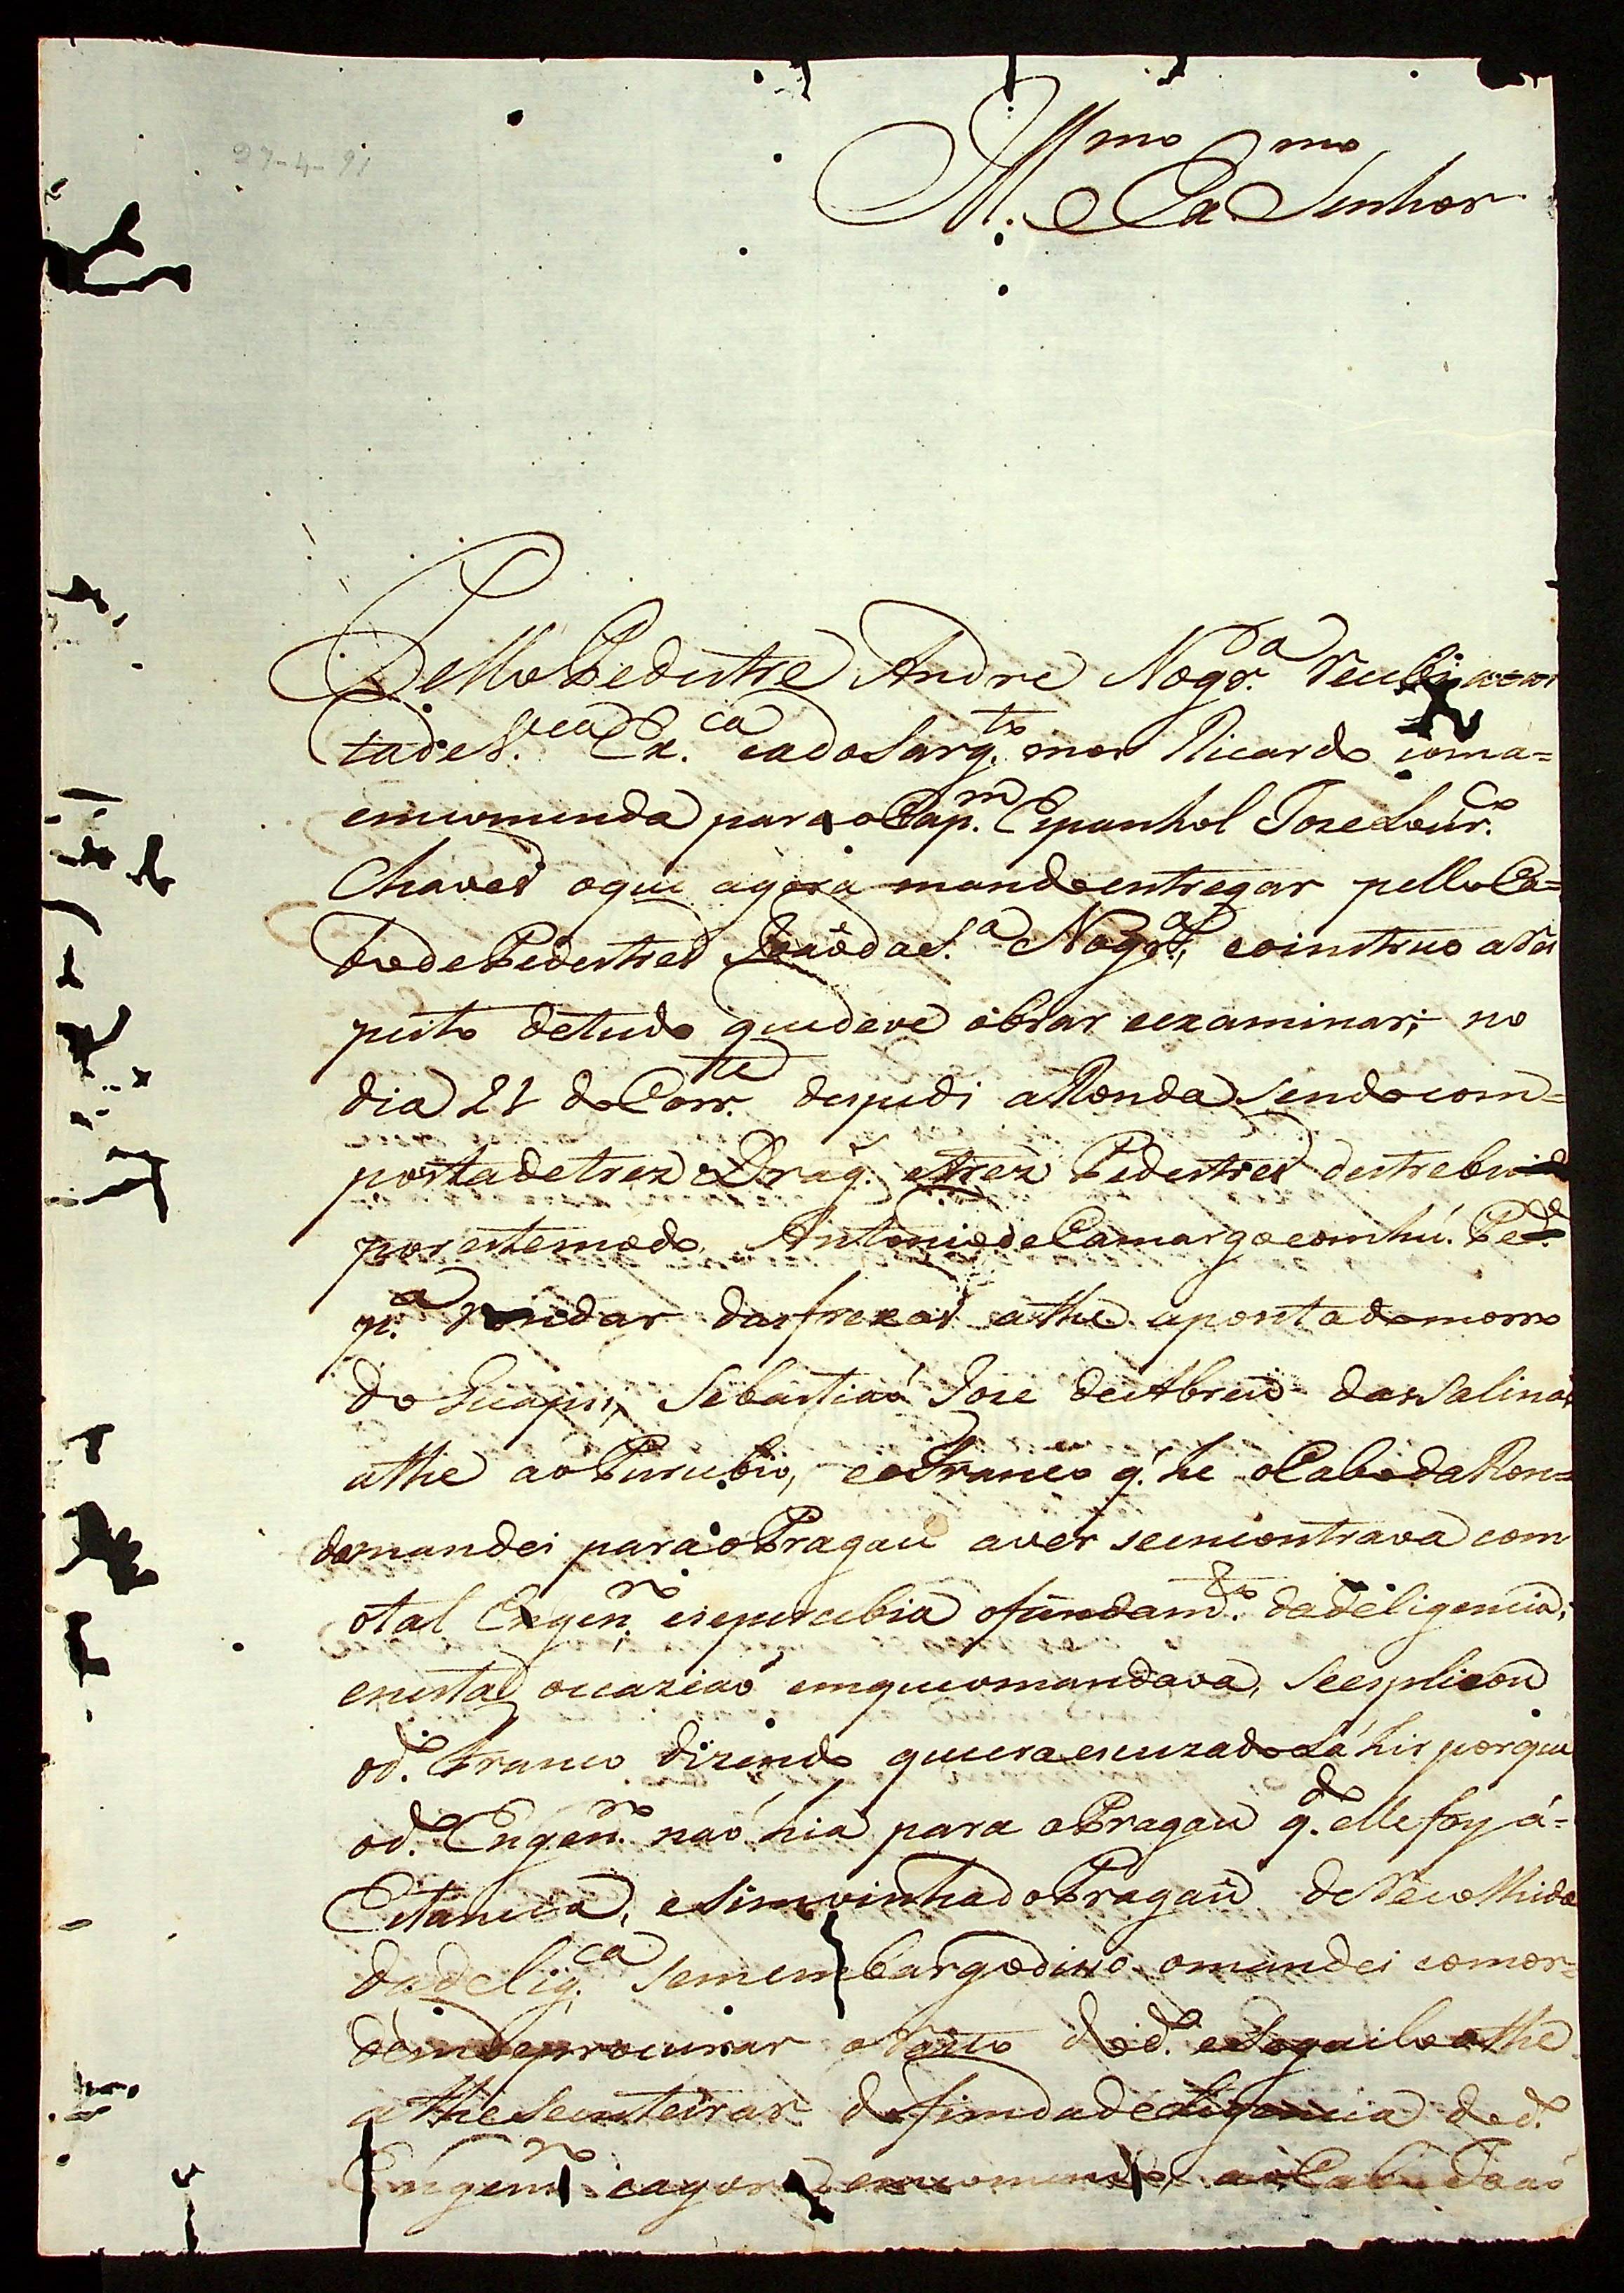 27-4-91
Ill.mo e Ex.mo Senhor
Pello Pedestre Andre Nogr.a recebi a car
ta de V.cea Ex.ca e a do Sarg.to mor Ricardo com a=
emcomenda para o Cap.m Espanhol Joze Lour.ço
Chaves o que agora mando entregar pello Ca=
bo de Pedestres João da S.a Nogr.a, e o instruo a res
peito de tudo que deve obrar e examinar; no
dia 21 do Corr.te despedi a Ronda sendo com=
posta de trez Drag. e trez Pedestres destrebui
por este modo. Antonio de Camargo com hú. Ped.
p.a rondar das frexas athe a ponta do morro
do Guapii, Sebastiaó Joze de Abreu das Salinas
athe ao Purubio, e o Franco q. he o Cabo da Ron=
da mandei para o Pragau a ver se emcontrava com
o tal Engen.ro e se percebia o fundam.to da deligencia;
e nesta occaziaó em que o mandava, se esplicou
o d.o Franco dizendo que era escuzado Lá hir porque
o d.o Engen.ro naó hia para o Pragau q.do elle foy á=
Estancia, e sim vinha do Pragau de recolhida
da delig.ca sem embargo disso o mandei com or=
dem de procurar o rasto do d.o e seguilo athe
athe se enteirar do fim da deligencia do d.o
Engen.ro e agora emcomendo ao Cabo Joaó